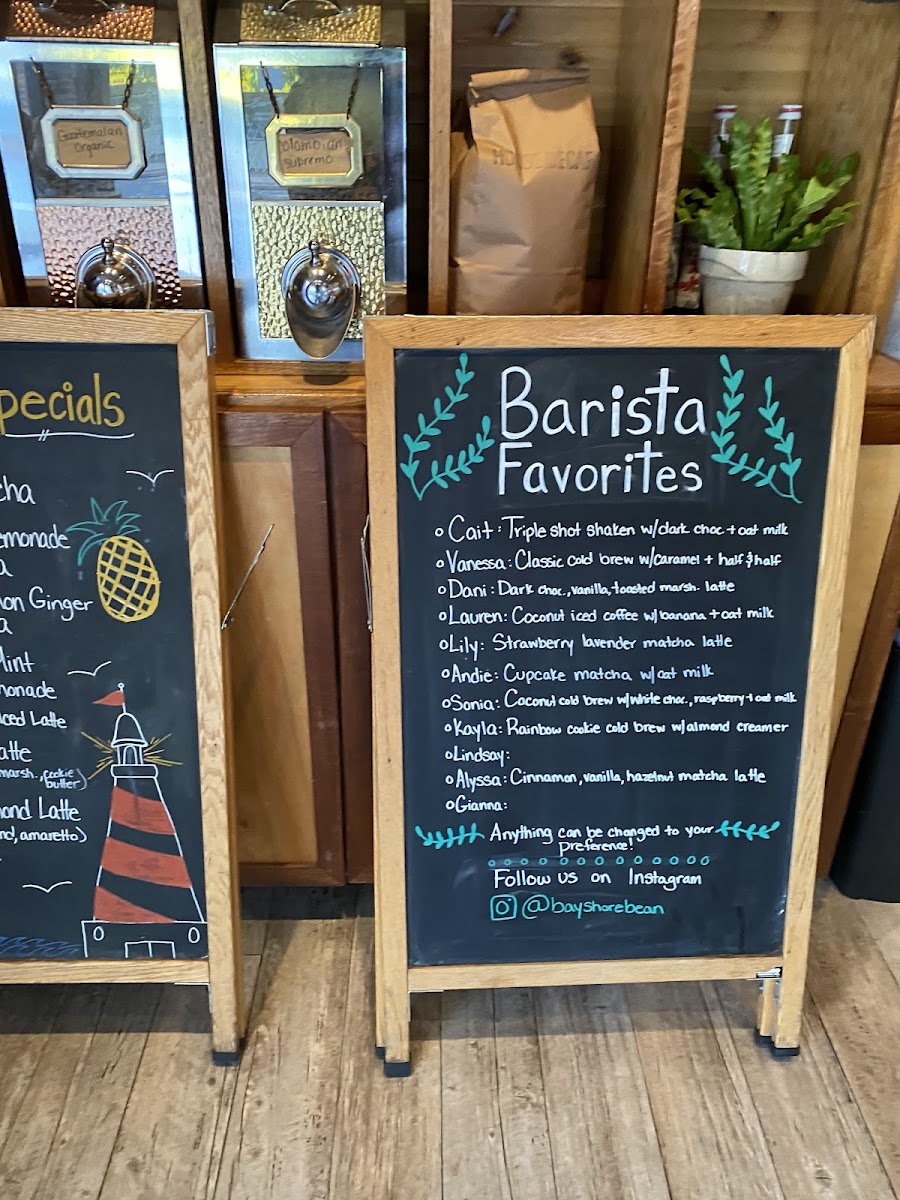 Guatemalan
Organic
olombian
supremo
pecials
cha
emonade
a
on Ginger
a
Mint
monade
iced Latte
atte
marsh., cookie
butter)
mond Latte
nd, amaretto)
Barista
Favorites
Cait: Triple shot shaken w/dark choc + oat milk
Vanessa: Classic cold brew w/caramel + half & half
Dani: Dark choc., vanilla, toasted marsh. latte
Lauren: Coconut iced coffee w/banana + oat milk
Lily: Strawberry lavender matcha latte
Andie: Cupcake matcha w/oat milk
Sonia: Coconut cold brew w/white choc., raspberry + oat milk
Kayla: Rainbow cookie cold brew w/almond creamer
Lindsay:
Alyssa: Cinnamon, vanilla, hazelnut matcha latte
Gianna:
Anything can be changed to your
preference!
Follow us on Instagram
@bayshorebean